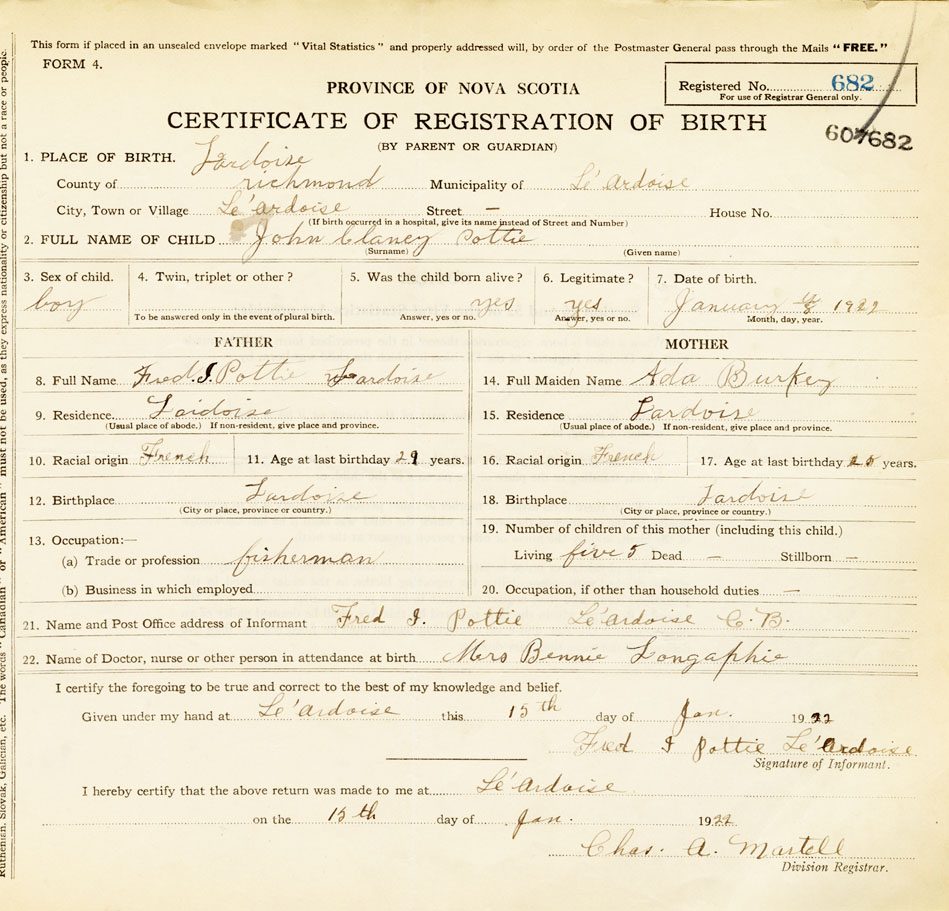 This form if placed in an unsealed envelope marked "Vital Statistics" and properly addressed will, by order of the Postmaster General pass through the Mails "FREE."
FORM 4.
PROVINCE OF NOVA SCOTIA
Registered No. 682
For use of Registrar General only.
CERTIFICATE OF REGISTRATION OF BIRTH
607682
(BY PARENT OR GUARDIAN)
1. PLACE OF BIRTH. Lardoise
County of richmond Municipality of Lé'ardoise
City, Town or Village Lé'ardoise Street — House No.
(If birth occurred in a hospital, give its name instead of Street and Number)
2. FULL NAME OF CHILD John Clancy Pottie
(Surname) (Given name)
3. Sex of child. 4. Twin, triplet or other? 5. Was the child born alive? 6. Legitimate? 7. Date of birth.
boy yes yes January 8 1922
To be answered only in the event of plural birth. Answer, yes or no. Answer, yes or no. Month, day, year.
FATHER MOTHER
8. Full Name Fred. I. Pottie Lardoise 14. Full Maiden Name Ada Burkey
9. Residence. Lardoise 15. Residence Lardoise
(Usual place of abode.) If non-resident, give place and province. (Usual place of abode.) If non-resident, give place and province.
10. Racial origin French 11. Age at last birthday 29 years. 16. Racial origin French 17. Age at last birthday 25 years.
12. Birthplace Lardoise 18. Birthplace Lardoise
(City or place, province or country.) (City or place, province or country.)
13. Occupation:— 19. Number of children of this mother (including this child.)
(a) Trade or profession fisherman Living five 5 Dead — Stillborn —
(b) Business in which employed 20. Occupation, if other than household duties —
21. Name and Post Office address of Informant Fred I. Pottie Lé'ardoise C. B.
22. Name of Doctor, nurse or other person in attendance at birth Mrs Bennie Longaphie
I certify the foregoing to be true and correct to the best of my knowledge and belief.
Given under my hand at Lé'ardoise this 15th day of Jan. 1922
Fred I Pottie Lé'ardoise
Signature of Informant.
I hereby certify that the above return was made to me at Lé'ardoise
on the 15th day of Jan. 1922
Chas. A. Martell
Division Registrar.
Ruthenian, Slovak, Galician, etc. The words "Canadian" or "American" must not be used, as they express nationality or citizenship but not a race or people.